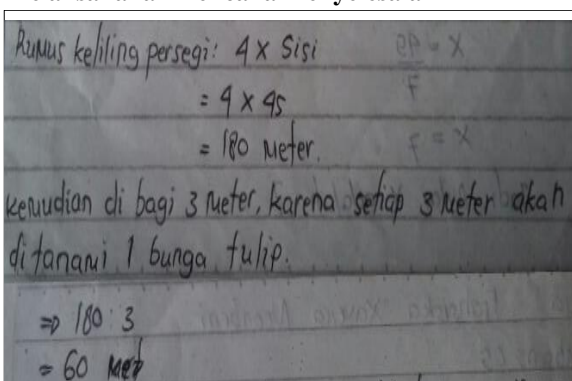 Rumus keliling persegi: 4 x Sisi
= 4 x 45
= 180 Meter.
kemudian di bagi 3 Meter, karena setiap 3 Meter akan
ditanami 1 bunga tulip.
=> 180 : 3
= 60 Met